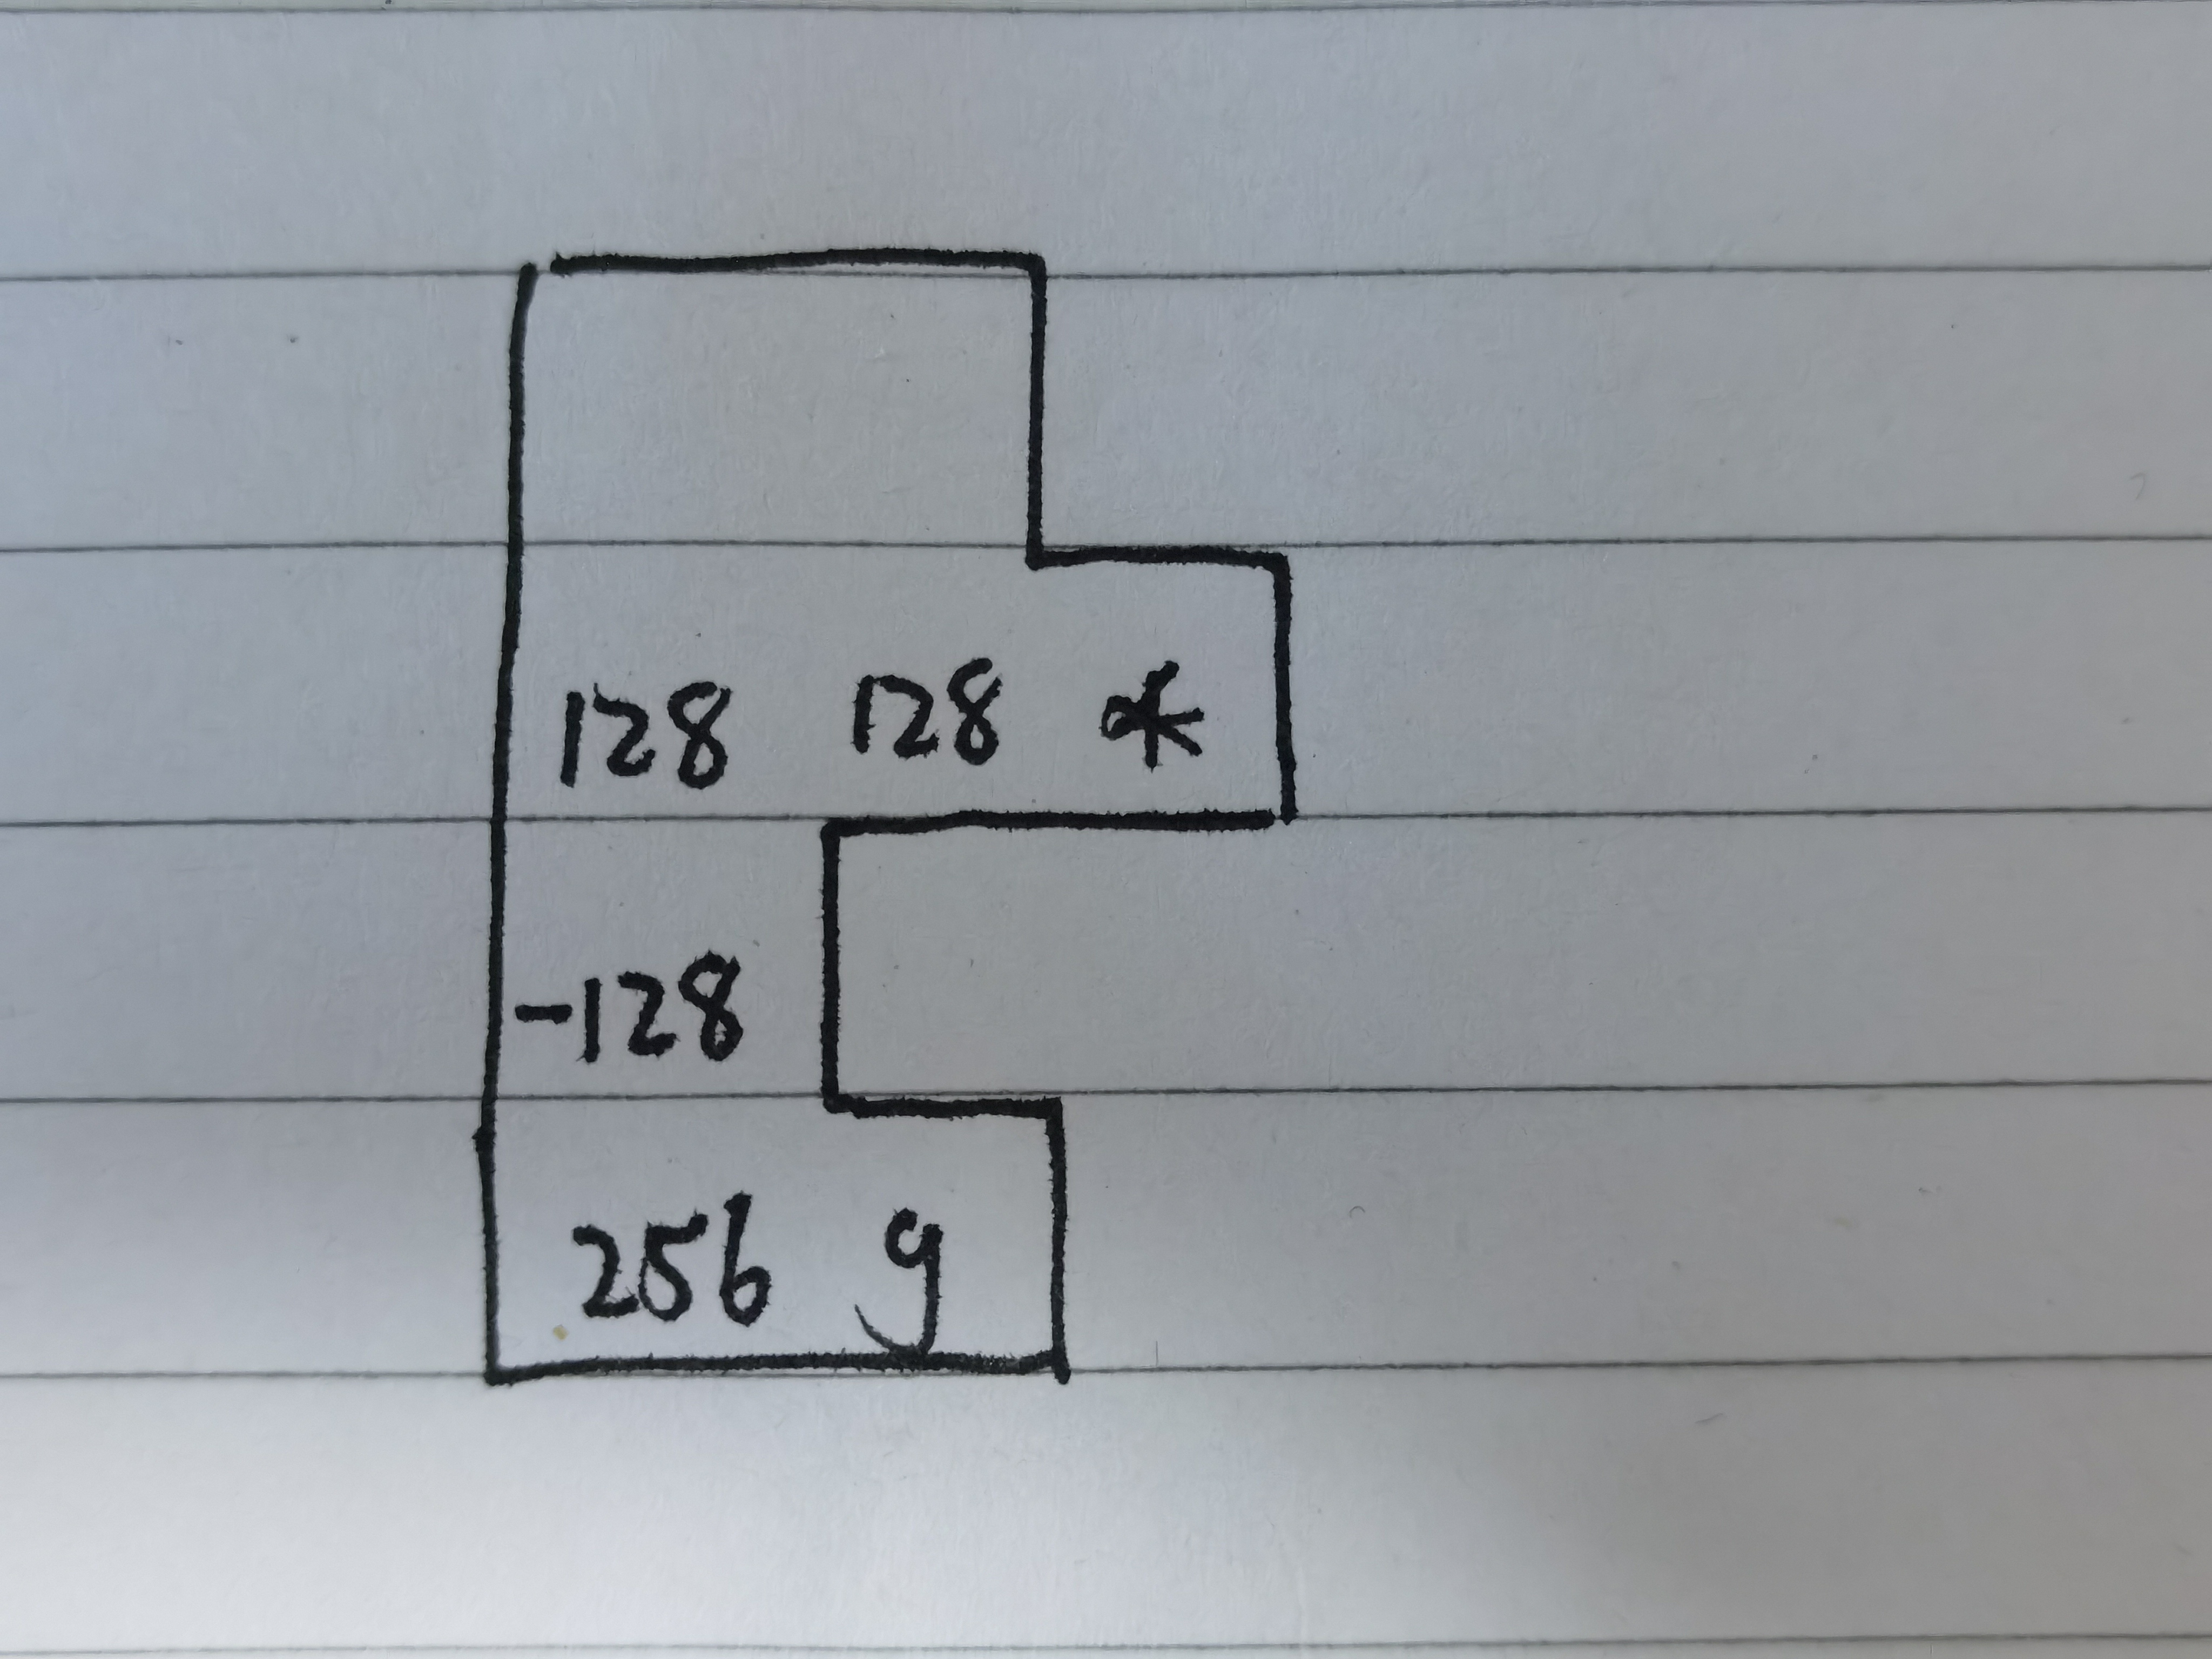 128 128 *
-128
256 g